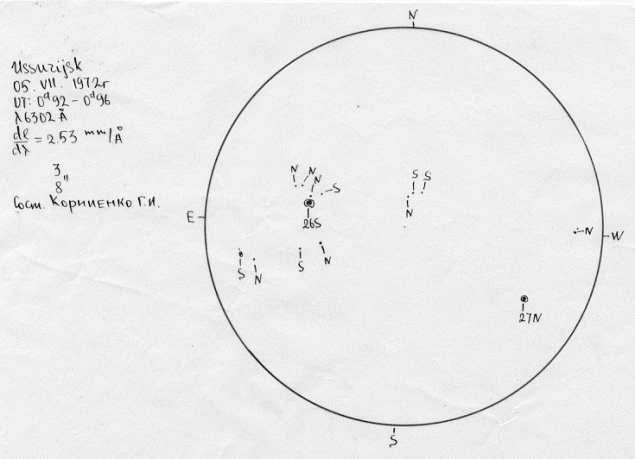 Ussurijsk
05. VII. 1972г
UT: 0ᵈ92 – 0ᵈ96
λ6302 Å
dl/dλ = 2.53 mm/Å
3
8"
Сост. Корниенко Г.И.
N
N N
N
S
26S
S S
N
E
W
N
S
N
S
N
27N
S